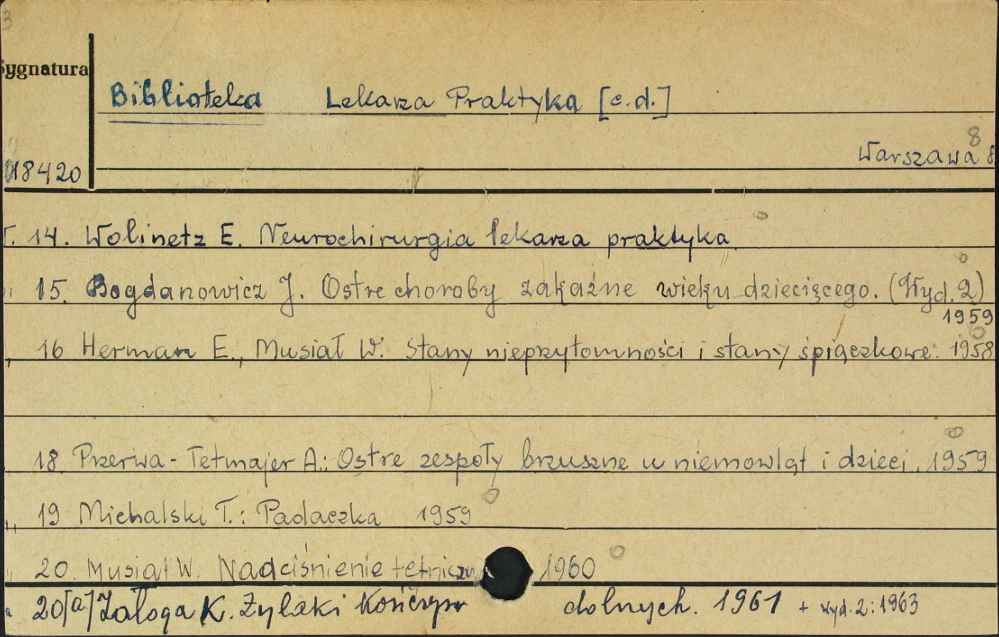 3
Sygnatura
Biblioteka Lekarza Praktyka [c.d.]
8
Warszawa 8
18420
T. 14. Wolinetz E. Neurochirurgia lekarza praktyka.
" 15. Bogdanowicz J. Ostre choroby zakaźne wieku dziecięcego. (Wyd. 2)
1959
" 16 Herman E., Musiał W. Stany nieprzytomności i stany śpiączkowe. 1958
18 Przerwa-Tetmajer A.: Ostre zespoły brzuszne u niemowląt i dzieci. 1959
" 19 Michalski T.: Padaczka 1959
" 20. Musiał W. Nadciśnienie tętnicze 1960
" 20[a] Załoga K. Żylaki kończyn dolnych. 1961 + wyd. 2: 1963